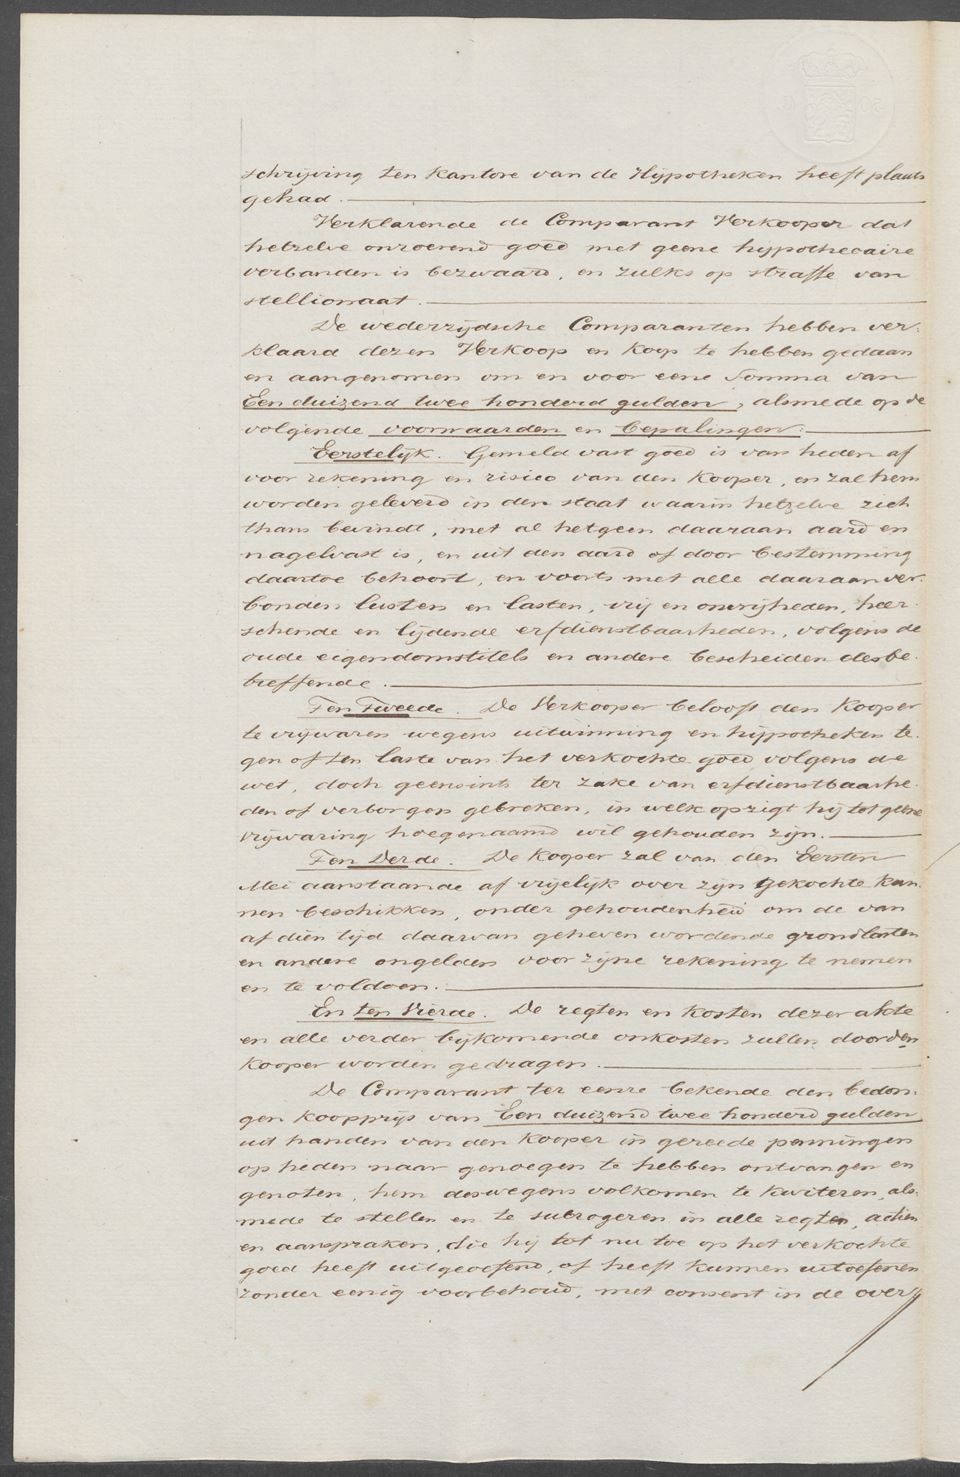 schrijving ten kantore van de Hypotheken heeft plaats
gehad.
Verklarende de Comparant Verkooper dat
hetzelve onroerend goed met geene hypothecaire
verbanden is bezwaard, en zulks op straffe van
stellionaat.
De wederzijdsche Comparanten hebben ver-
klaard dezen Verkoop en Koop te hebben gedaan
en aangenomen om en voor eene Somma van
Een duizend twee honderd gulden, alsmede op de
volgende voorwaarden en bepalingen:
Eerstelijk. Gemeld vast goed is van heden af
voor rekening en risico van den Kooper, en zal hem
worden geleverd in den staat waarin hetzelve zich
thans bevindt, met al hetgeen daaraan aard en
nagelvast is, en uit den aard of door bestemming
daartoe behoort, en voorts met alle daaraan ver-
bonden lusten en lasten, vrij en onvrijheden, heer-
schende en lijdende erfdienstbaarheden, volgens de
oude eigendomstitels en andere bescheiden desbe-
treffende.
Ten Tweede. De Verkooper belooft den Kooper
te vrijwaren wegens uitwinning en hypotheken te-
gen of ten laste van het verkochte goed volgens de
wet, doch geensints ter zake van erfdienstbaarhe-
den of verborgen gebreken, in welk opzigt hij tot geene
vrijwaring hoegenaamd wil gehouden zijn.
Ten Derde. De Kooper zal van den Eersten
Mei aanstaande af vrijelijk over zijn gekochte kun-
nen beschikken, onder gehoudenheid om de van
af dien tijd daarvan geheven wordende grondlasten
en andere ongelden voor zijne rekening te nemen
en te voldoen.
En ten Vierde. De regten en kosten dezer akte
en alle verder bijkomende onkosten zullen door den
Kooper worden gedragen.
De Comparant ter eenre bekende den bedon-
gen koopprijs van Een duizend twee honderd gulden
uit handen van den Kooper in gereede penningen
op heden naar genoegen te hebben ontvangen en
genoten, hem deswegens volkomen te kwiteren, als-
mede te stellen en te subrogeren in alle regten, actien
en aanspraken, die hij tot nu toe op het verkochte
goed heeft uitgeoefend, of heeft kunnen uitoefenen
zonder eenig voorbehoud, met consent in de over